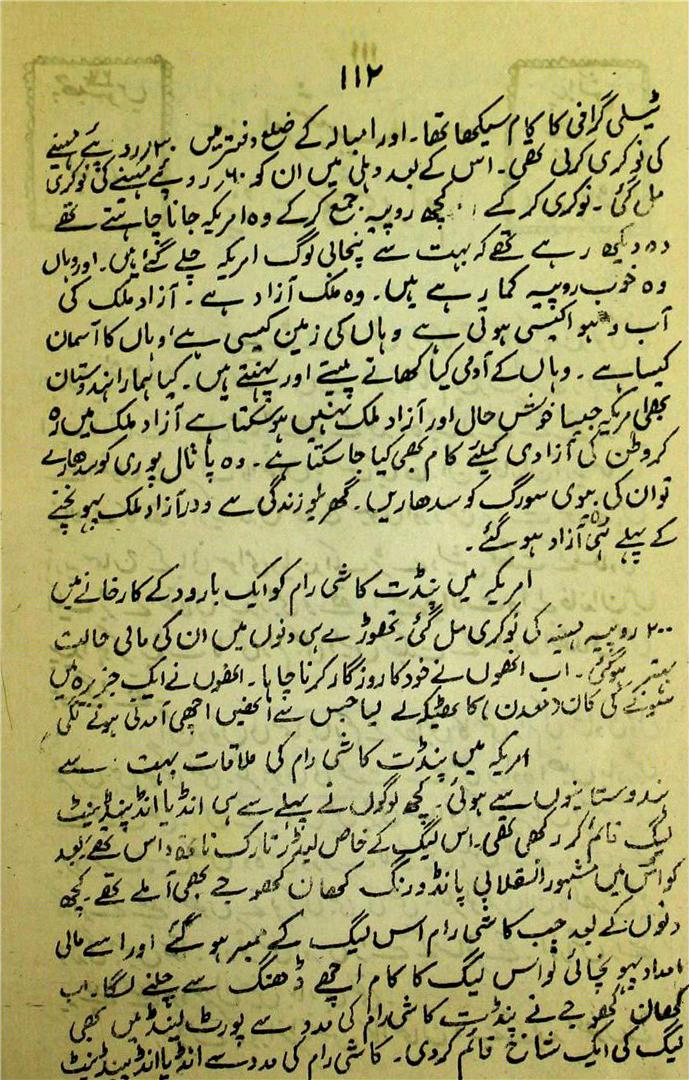 ۱۱۲
ٹیلی گرافی کا کام سیکھا تھا۔ اور انبالہ کے ضلع دفتر میں ۳۰؍ روپئے مہینے
کی نوکری کرلی تھی۔ اس کے بعد دہلی میں ان کو ۶۰؍ روپئے مہینے کی نوکری
مل گئی۔ نوکری کر کے کچھ روپیہ جمع کر کے وہ امریکہ جانا چاہتے تھے
وہ دیکھ رہے تھے کہ بہت سے پنجابی لوگ امریکہ چلے گئے ہیں۔ اور وہاں
وہ خوب روپیہ کما رہے ہیں۔ وہ ملک آزاد ہے۔ آزاد ملک کی
آب و ہوا کیسی ہوتی ہے وہاں کی زمین کیسی ہے، وہاں کا آسمان
کیسا ہے۔ وہاں کے آدمی کیا کھاتے پیتے اور پہنتے ہیں۔ کیا ہمارا ہندوستان
بھی امریکہ جیسا خوش حال اور آزاد ملک نہیں ہوسکتا ہے آزاد ملک میں رہ
کر وطن کی آزادی کیلئے کام بھی کیا جاسکتا ہے۔ وہ پاتال پوری کو سدھارے
تو ان کی بیوی سورگ کو سدھاریں۔ گھریلو زندگی سے وہ آزاد ملک پہونچنے
کے پہلے ہی آزاد ہو گئے۔
امریکہ میں پنڈت کاشی رام کو ایک بارود کے کارخانے میں
۲۰۰ روپیہ مہینہ کی نوکری مل گئی۔ تھوڑے ہی دنوں میں ان کی مالی حالت
بہتر ہوگئی۔ اب انھوں نے خود کا روزگار کرنا چاہا۔ انھوں نے ایک جزیرہ میں
سونے کی کان (معدن) کا ٹھیکہ لے لیا جس سے انھیں اچھی آمدنی ہونے لگی
امریکہ میں پنڈت کاشی رام کی ملاقات بہت سے
ہندوستانیوں سے ہوئی۔ کچھ لوگوں نے پہلے سے ہی انڈیا انڈیپنڈینٹ
لیگ قائم کر رکھی تھی۔ اس لیگ کے خاص لیڈر تارک ناتھ داس تھے بعد
کو اس میں مشہور انقلابی پانڈورنگ کھان کھوجے بھی آملے تھے۔ کچھ
دنوں کے بعد جب کاشی رام اس لیگ کے ممبر ہو گئے اور اسے مالی
امداد پہونچائی تو اس لیگ کا کام اچھے ڈھنگ سے چلنے لگا۔ اب
کھان کھوجے نے پنڈت کاشی رام کی مدد سے پورٹ لینڈ میں بھی
لیگ کی ایک شاخ قائم کردی۔ کاشی رام کی مدد سے انڈیا انڈیپنڈینٹ